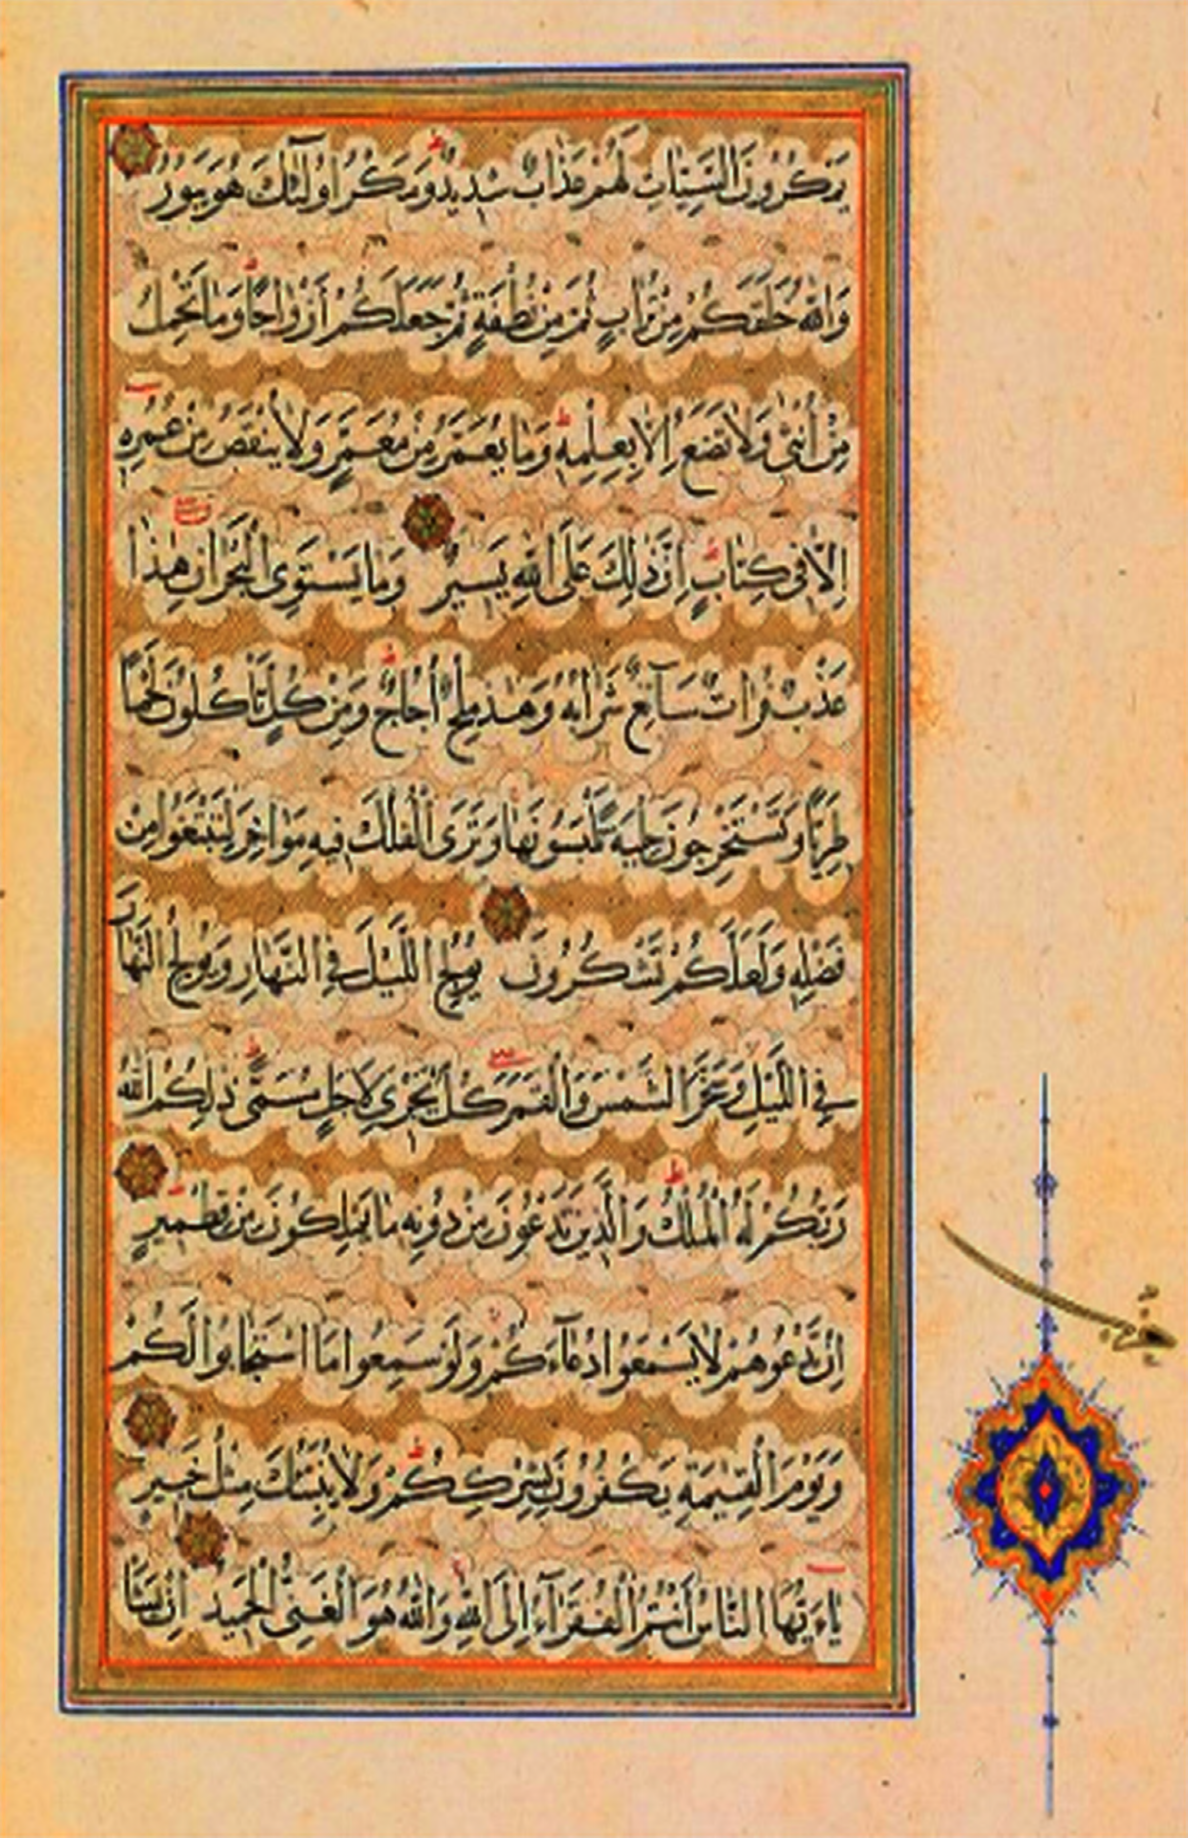 يَمْكُرُونَ السَّيِّئَاتِ لَهُمْ عَذَابٌ شَدِيدٌ وَمَكْرُ اُولٰئِكَ هُوَ يَبُورُ
وَاللّٰهُ خَلَقَكُمْ مِنْ تُرَابٍ ثُمَّ مِنْ نُطْفَةٍ ثُمَّ جَعَلَكُمْ أَزْوَاجًا وَمَا تَحْمِلُ
مِنْ أُنْثٰى وَلَا تَضَعُ اِلَّا بِعِلْمِهِ وَمَا يُعَمَّرُ مِنْ مُعَمَّرٍ وَلَا يُنْقَصُ مِنْ عُمُرِهِ
اِلَّا فِى كِتَابٍ اِنَّ ذٰلِكَ عَلَى اللّٰهِ يَسِيرٌ وَمَا يَسْتَوِى الْبَحْرَانِ هٰذَا
عَذْبٌ فُرَاتٌ سَآئِغٌ شَرَابُهُ وَهٰذَا مِلْحٌ أُجَاجٌ وَمِنْ كُلٍّ تَأْكُلُونَ لَحْمًا
طَرِيًّا وَتَسْتَخْرِجُونَ حِلْيَةً تَلْبَسُونَهَا وَتَرَى الْفُلْكَ فِيهِ مَوَاخِرَ لِتَبْتَغُوا مِنْ
فَضْلِهِ وَلَعَلَّكُمْ تَشْكُرُونَ يُولِجُ اللَّيْلَ فِى النَّهَارِ وَيُولِجُ النَّهَارَ
فِى اللَّيْلِ وَسَخَّرَ الشَّمْسَ وَالْقَمَرَ كُلٌّ يَجْرِى لِاَجَلٍ مُسَمًّى ذٰلِكُمُ اللّٰهُ
رَبُّكُمْ لَهُ الْمُلْكُ وَالَّذِينَ تَدْعُونَ مِنْ دُونِهِ مَا يَمْلِكُونَ مِنْ قِطْمِيرٍ
اِنْ تَدْعُوهُمْ لَا يَسْمَعُوا دُعَآءَكُمْ وَلَوْ سَمِعُوا مَا اسْتَجَابُوا لَكُمْ
وَيَوْمَ الْقِيٰمَةِ يَكْفُرُونَ بِشِرْكِكُمْ وَلَا يُنَبِّئُكَ مِثْلُ خَبِيرٍ
يَاءَيُّهَا النَّاسُ أَنْتُمُ الْفُقَرَآءُ اِلَى اللّٰهِ وَاللّٰهُ هُوَ الْغَنِىُّ الْحَمِيدُ اِنْ يَشَأْ